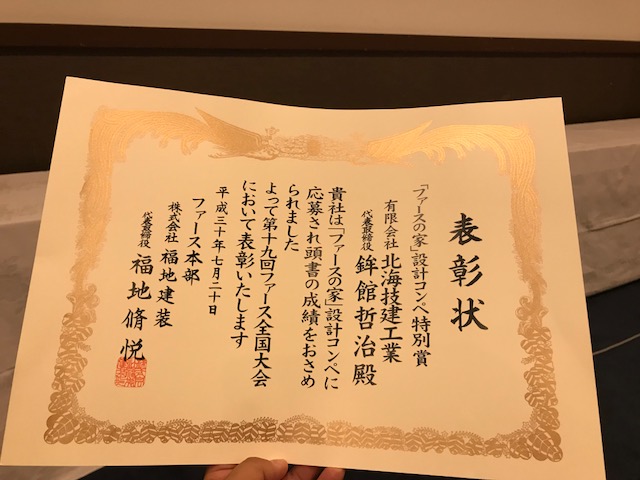 表彰状
「ファースの家」設計コンペ特別賞
有限会社 北海技建工業
代表取締役 鉾館哲治殿
貴社は「ファースの家」設計コンペに
応募され頭書の成績をおさめ
られました
よって第十九回ファース全国大会
において表彰いたします
平成三十年七月二十日
ファース本部
株式会社 福地建装
代表取締役 福地脩悦